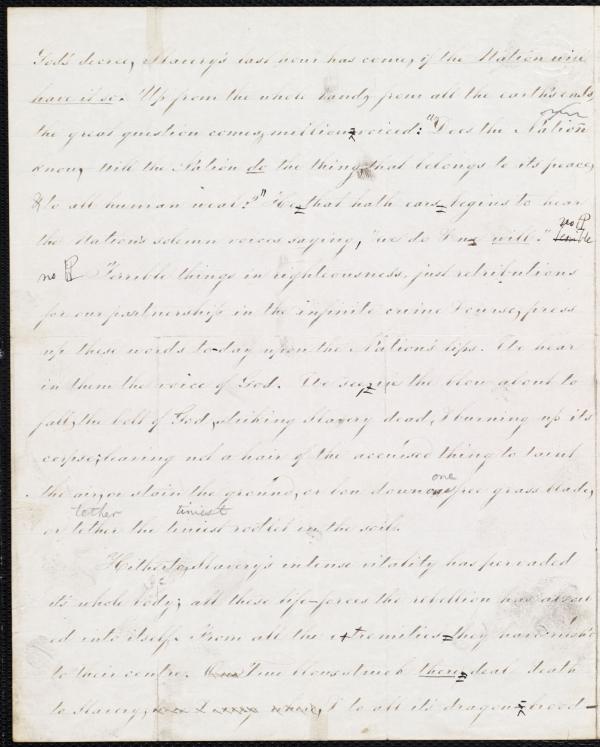 God's decree, Slavery's last hour has come, if the Nation will
have it so. Up from the whole land, from all the earth's ends,
the great question comes, million-voiced: "Does the Nation
know, will the Nation do the thing that belongs to its peace,
& to all human weal?" He that hath ears begins to hear
the Nation's solemn voices saying, "we do & we will." Terrible
no ¶
no ¶ Terrible things in righteousness, just retributions
for our partnership in the infinite crime & curse, press
up these words to-day upon the Nation's lips. We hear
in them the voice of God. We see in the blow about to
fall, the bolt of God, striking Slavery dead, & burning up its
corpse; leaving not a hair of the accursed thing to taint
the air, or stain the ground, or down one free grass blade,
one
tether tiniest
or tether the tiniest rootlet in the soil.
Hitherto, Slavery's intense vitality has pervaded
its whole body; all these life-forces the rebellion has
ed into itself. From all the extremities they have rush'd
to their centre. One blow struck there, deals death
to Slavery, & to all its dragon-brood-